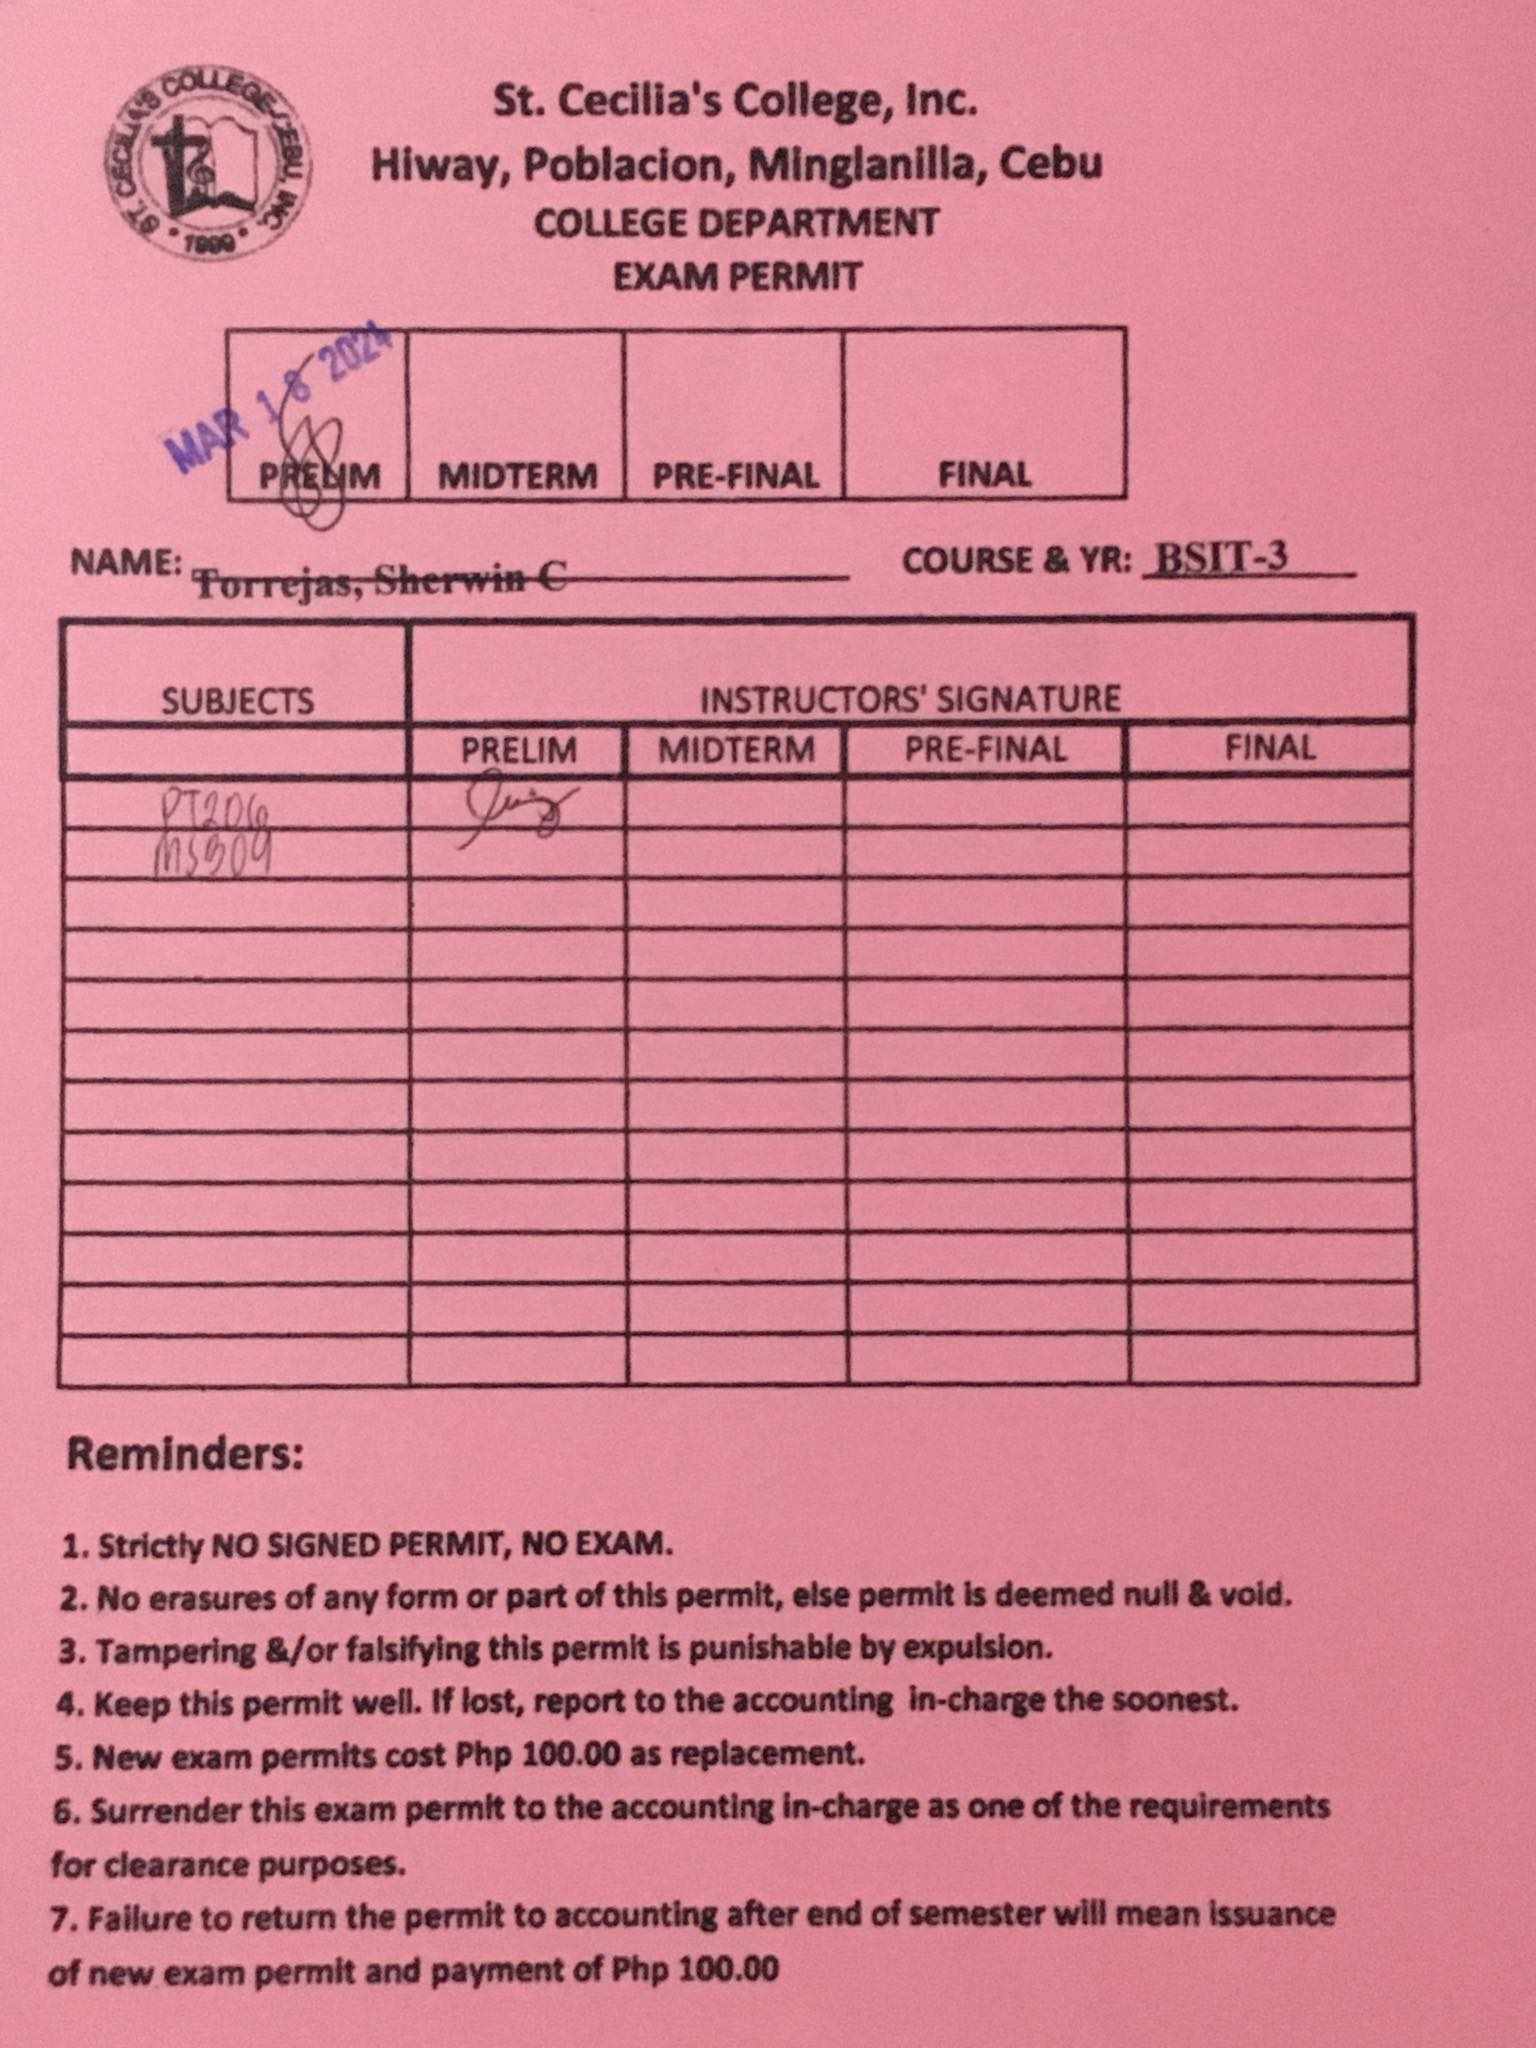 ST. CECILIA'S COLLEGE-CEBU, INC.
1999
St. Cecilia's College, Inc.
Hiway, Poblacion, Minglanilla, Cebu
COLLEGE DEPARTMENT
EXAM PERMIT
MAR 18 2024
PRELIM MIDTERM PRE-FINAL FINAL
NAME: Torrejas, Sherwin C COURSE & YR: BSIT-3
SUBJECTS INSTRUCTORS' SIGNATURE
PRELIM MIDTERM PRE-FINAL FINAL
PT206
MS309
Reminders:
1. Strictly NO SIGNED PERMIT, NO EXAM.
2. No erasures of any form or part of this permit, else permit is deemed null & void.
3. Tampering &/or falsifying this permit is punishable by expulsion.
4. Keep this permit well. If lost, report to the accounting in-charge the soonest.
5. New exam permits cost Php 100.00 as replacement.
6. Surrender this exam permit to the accounting in-charge as one of the requirements
for clearance purposes.
7. Failure to return the permit to accounting after end of semester will mean issuance
of new exam permit and payment of Php 100.00